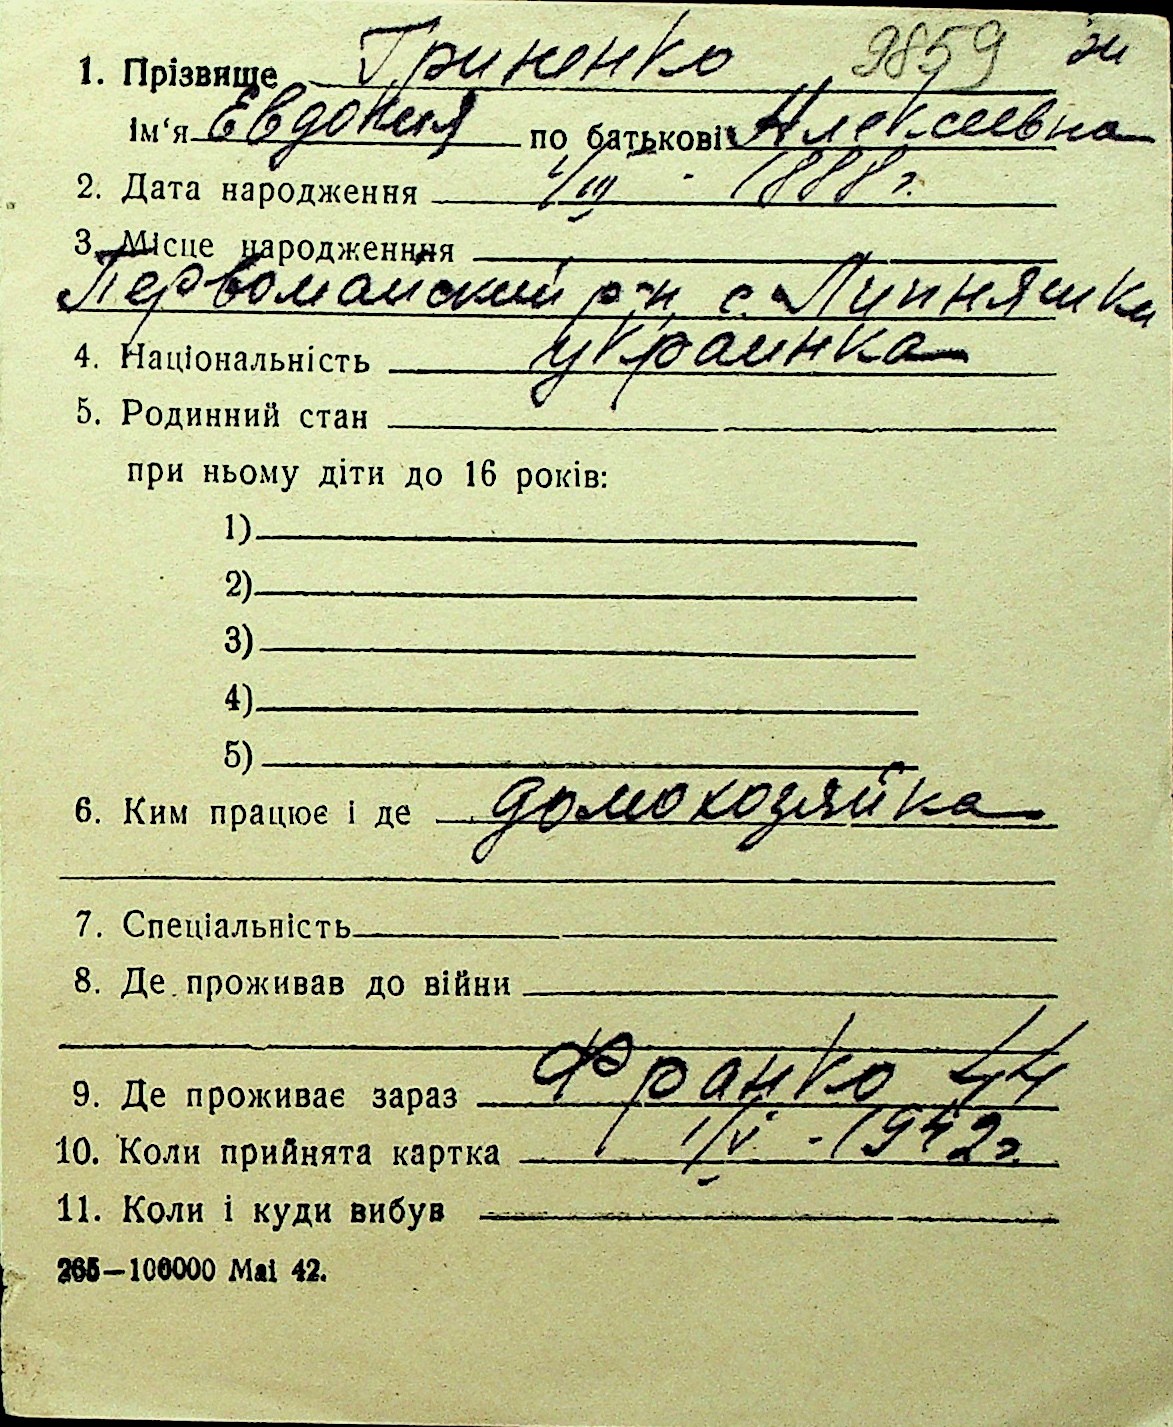 1. Прізвище Гриненко 9859 зи
Ім‘я Евдокия по батькові Алексеевна
2. Дата народження 1/III - 1888 г.
3. Місце народженння
Первомайский р-н с. Липняшки
4. Національність украинка
5. Родинний стан
при ньому діти до 16 років:
1)
2)
3)
4)
5)
6. Ким працює і де домохозяйка
7. Спеціальність
8. Де проживав до війни
9. Де проживає зараз Франко 44
10. Коли прийнята картка 1/VI - 1942 г.
11. Коли і куди вибув
265—100000 Mai 42.